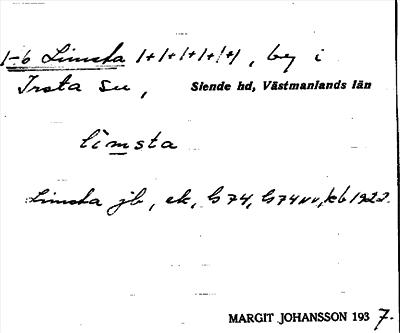 1-6 Limsta 1+1+1+1+1+1, by i
Irsta sn, Siende hd, Västmanlands län
limsta
Limsta jb, ek, G74, G74vv, kb 1922.
MARGIT JOHANSSON 1937.